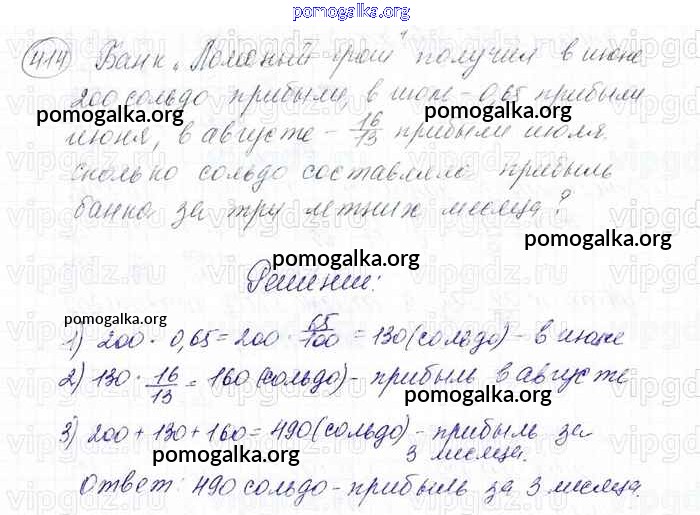 pomogalka.org
414) Банк "Ломаный грош" получил в июне
200 сольдо прибыли, в июле - 0,65 прибыли
pomogalka.org pomogalka.org
июня, в августе - 16/13 прибыли июля.
Сколько сольдо составляла прибыль
pomogalka.org
банка за три летних месяца?
pomogalka.org
pomogalka.org
Решение:
pomogalka.org
1) 200 · 0,65 = 200 · 65/100 = 130 (сольдо) - в июле
2) 130 · 16/13 = 160 (сольдо) - прибыль в августе
pomogalka.org
3) 200 + 130 + 160 = 490 (сольдо) - прибыль за
3 месяца.
pomogalka.org
Ответ: 490 сольдо - прибыль за 3 месяца.